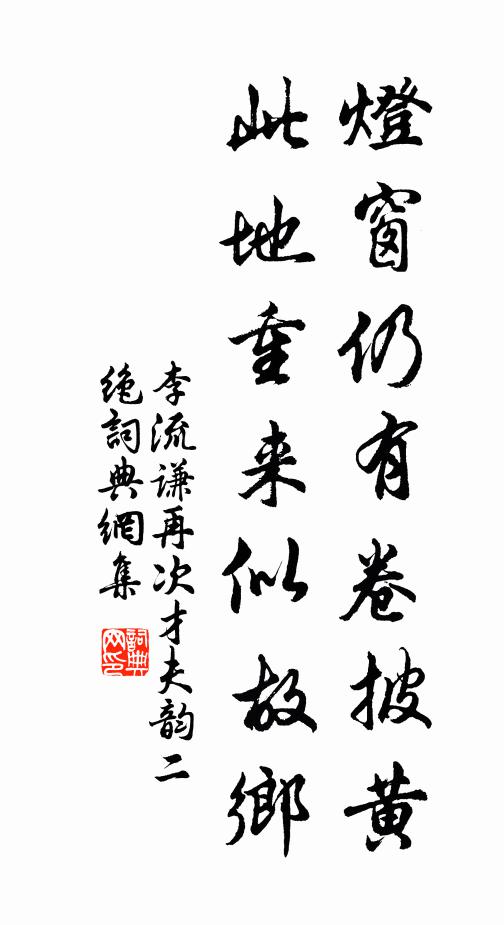 燈窗仍有卷披黃
此地重来似故鄉
李流谦再次才夫韵二
绝詞典網集
詞典
网印